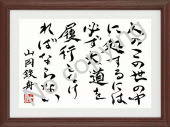 人のこの世の中
に処するには
必ず大道を
履行しなけ
ればならない
山岡鉄舟